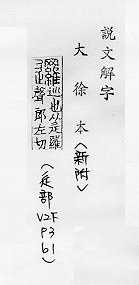 說文解字
大徐本（新附）
邏巡也从辵羅
聲郎左切
（辵部V2F
P3
61）